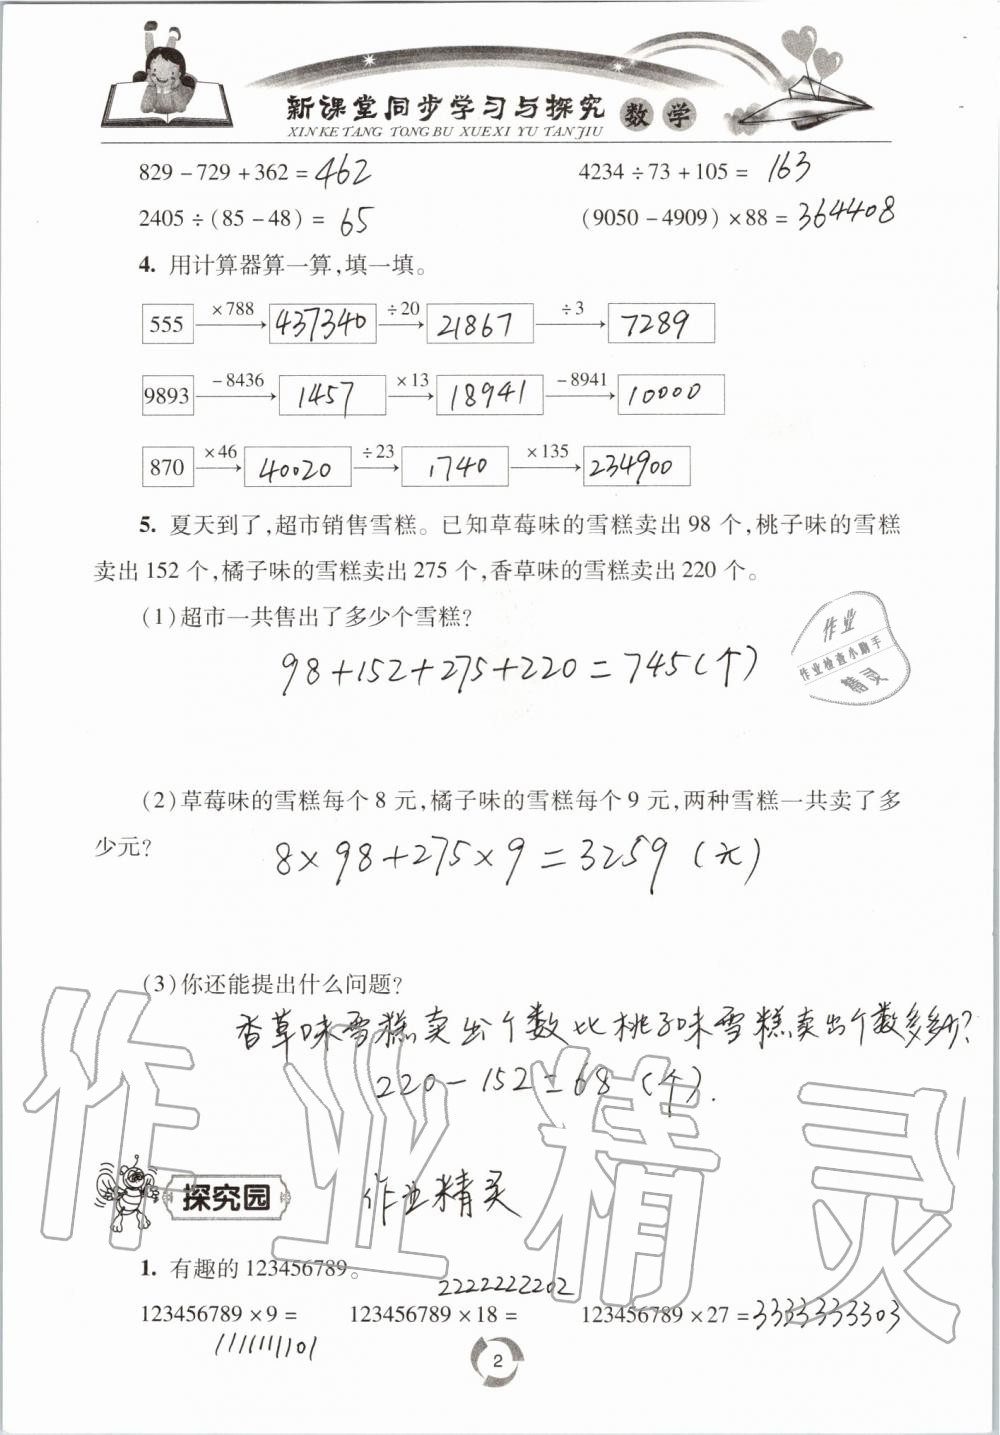 新课堂同步学习与探究 数学
XIN KE TANG TONG BU XUE XI YU TAN JIU
829－729＋362＝462 4234÷73＋105＝163
2405÷(85－48)＝65 (9050－4909)×88＝364408
4. 用计算器算一算,填一填。
555 ×788 437340 ÷20 21867 ÷3 7289
9893 －8436 1457 ×13 18941 －8941 10000
870 ×46 40020 ÷23 1740 ×135 234900
5. 夏天到了,超市销售雪糕。已知草莓味的雪糕卖出 98 个,桃子味的雪糕
卖出 152 个,橘子味的雪糕卖出 275 个,香草味的雪糕卖出 220 个。
(1)超市一共售出了多少个雪糕?
98+152+275+220=745(个)
作业
作业检查小助手
精灵
(2)草莓味的雪糕每个 8 元,橘子味的雪糕每个 9 元,两种雪糕一共卖了多
少元?
8×98+275×9=3259(元)
(3)你还能提出什么问题?
香草味雪糕卖出个数比桃子味雪糕卖出个数多多少?
220-152=68(个).
作业精灵
探究园
作业精灵
1. 有趣的 123456789。
2222222202
123456789×9＝ 123456789×18＝ 123456789×27＝3333333303
1111111101
2